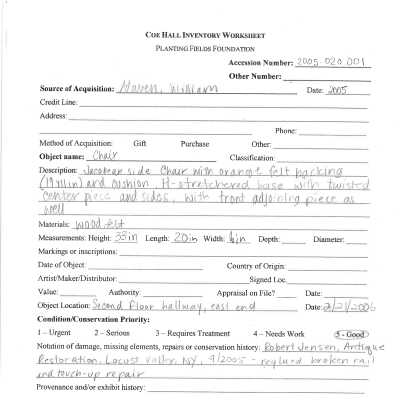 COE HALL INVENTORY WORKSHEET
PLANTING FIELDS FOUNDATION
Accession Number: 2005.020.001
Other Number:
Source of Acquisition: Maven, William Date: 2005
Credit Line:
Address:
Phone:
Method of Acquisition: Gift Purchase Other:
Object name: Chair Classification:
Description: Jacobean side Chair with orange felt backing
and cushion. H-stretchered base with twisted
center piece and sides, with front adjoining piece as
well
Materials: wood, felt
Measurements: Height: 33in Length: 20in Width: Depth: Diameter:
Markings or inscriptions:
Date of Object: Country of Origin:
Artist/Maker/Distributor: Signed Loc.
Value: Authority: Appraisal on File? Date:
Object Location: Second floor hallway, east end Date: 2/21/2006
Condition/Conservation Priority:
1 – Urgent 2 – Serious 3 – Requires Treatment 4 – Needs Work 5 - Good
Notation of damage, missing elements, repairs or conservation history: Robert Jensen, Antique
Restoration, Locust Valley, NY, 9/2005 - reglued broken rail
and touch-up repair
Provenance and/or exhibit history: